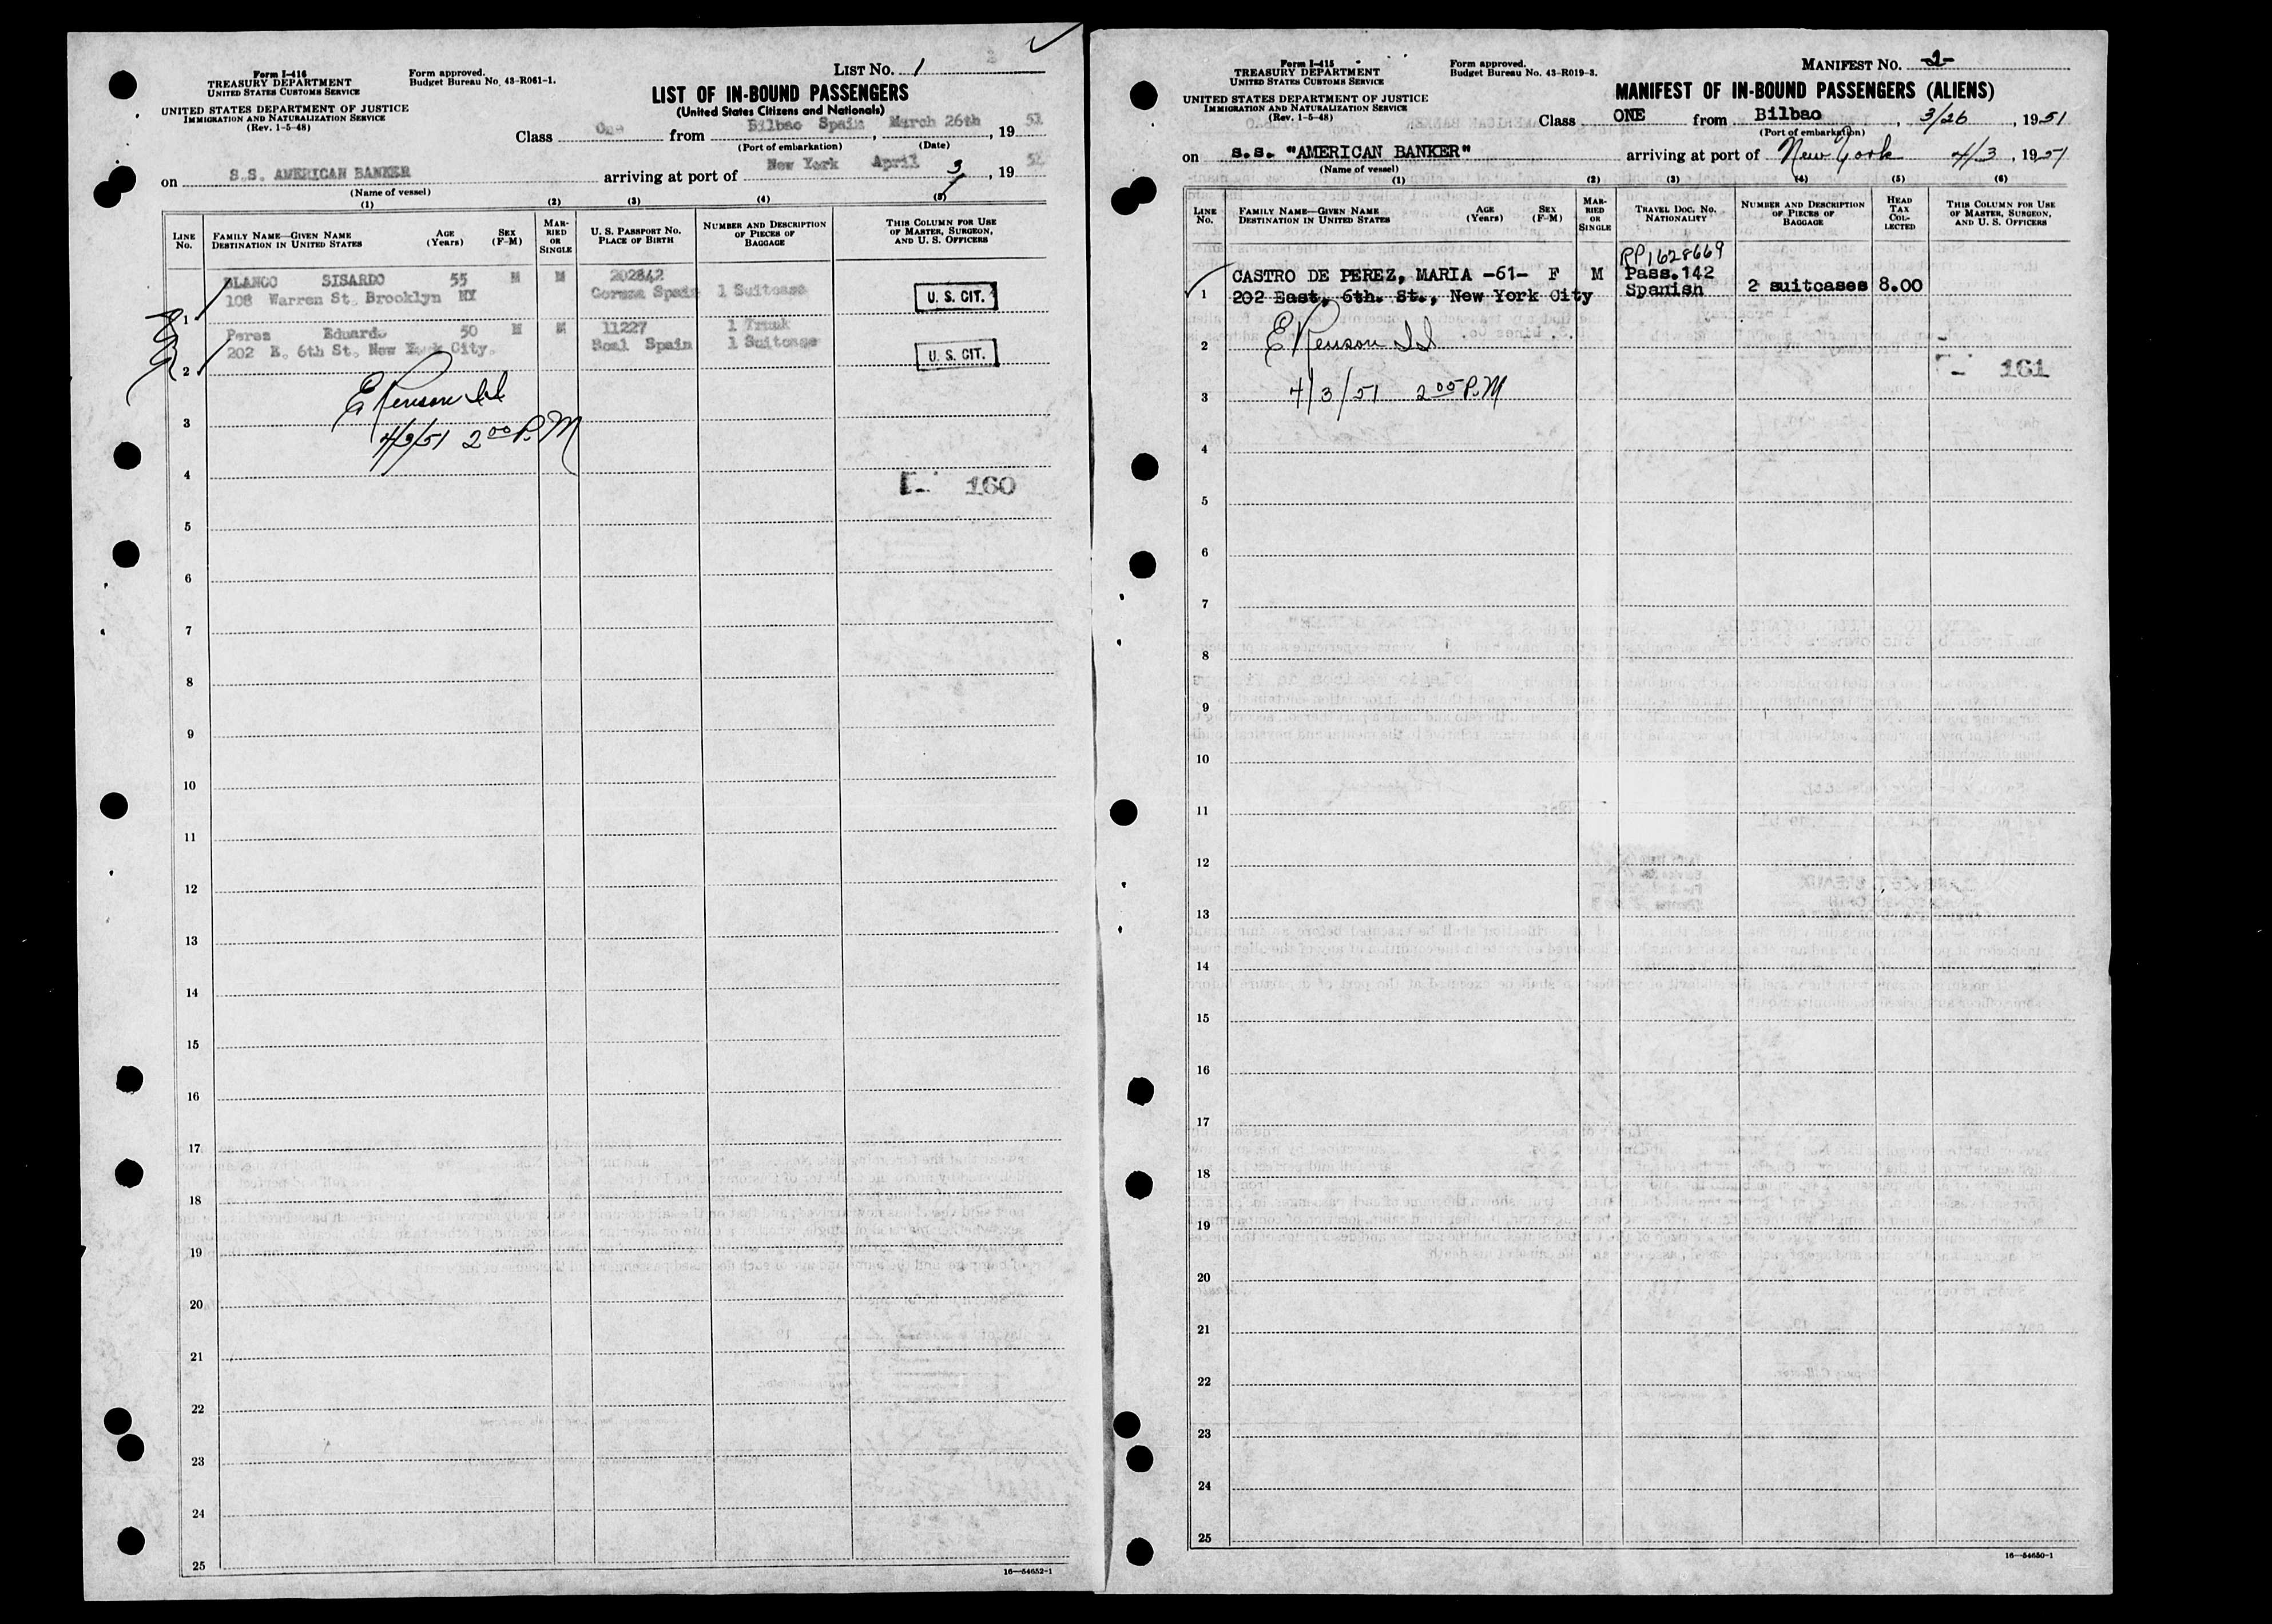 Form I-416
TREASURY DEPARTMENT
UNITED STATES CUSTOMS SERVICE
UNITED STATES DEPARTMENT OF JUSTICE
IMMIGRATION AND NATURALIZATION SERVICE
(Rev. 1-5-48)
Form approved.
Budget Bureau No. 43-R061-1.
LIST NO. 1
2
LIST OF IN-BOUND PASSENGERS
(United States Citizens and Nationals)
Class One from Bilbao Spain, March 26th, 1951
(Port of embarkation) (Date)
on S.S. AMERICAN BANKER arriving at port of New York April 3, 1951
(Name of vessel)
(1) (2) (3) (4) (5)
LINE NO.
FAMILY NAME—GIVEN NAME DESTINATION IN UNITED STATES
AGE (Years)
SEX (F-M)
MARRIED OR SINGLE
U. S. PASSPORT NO. PLACE OF BIRTH
NUMBER AND DESCRIPTION OF PIECES OF BAGGAGE
THIS COLUMN FOR USE OF MASTER, SURGEON, AND U. S. OFFICERS
BLANCO SISARDO 55 M M 202842
1 108 Warren St. Brooklyn NY Coruna Spain 1 Suitcase U. S. CIT.
Perez Eduardo 50 M M 11227 1 Trunk
2 202 E. 6th St. New York City. Boal Spain 1 Suitcase U. S. CIT.
3
4/3/51 2 00 P.M
4
160
5
6
7
8
9
10
11
12
13
14
15
16
17
18
19
20
21
22
23
24
25
16—54652-1
Form I-415
TREASURY DEPARTMENT
UNITED STATES CUSTOMS SERVICE
UNITED STATES DEPARTMENT OF JUSTICE
IMMIGRATION AND NATURALIZATION SERVICE
(Rev. 1-5-48)
Form approved.
Budget Bureau No. 43-R019-3.
MANIFEST NO. 2
MANIFEST OF IN-BOUND PASSENGERS (ALIENS)
Class ONE from Bilbao, 3/26, 1951
(Port of embarkation)
on s.s. "AMERICAN BANKER" arriving at port of New York 4/3, 1951
(Name of vessel)
(1) (2) (3) (4) (5) (6)
LINE NO.
FAMILY NAME—GIVEN NAME DESTINATION IN UNITED STATES
AGE (Years)
SEX (F-M)
MARRIED OR SINGLE
TRAVEL DOC. NO. NATIONALITY
NUMBER AND DESCRIPTION OF PIECES OF BAGGAGE
HEAD TAX COLLECTED
THIS COLUMN FOR USE OF MASTER, SURGEON, AND U. S. OFFICERS
RP1628669
CASTRO DE PEREZ, MARIA -61- F M Pass.142
1 202 East, 6th. St., New York City Spanish 2 suitcases 8.00
2
161
3 4/3/51 2 05 P.M
4
5
6
7
8
9
10
11
12
13
14
15
16
17
18
19
20
21
22
23
24
25
16—54650-1